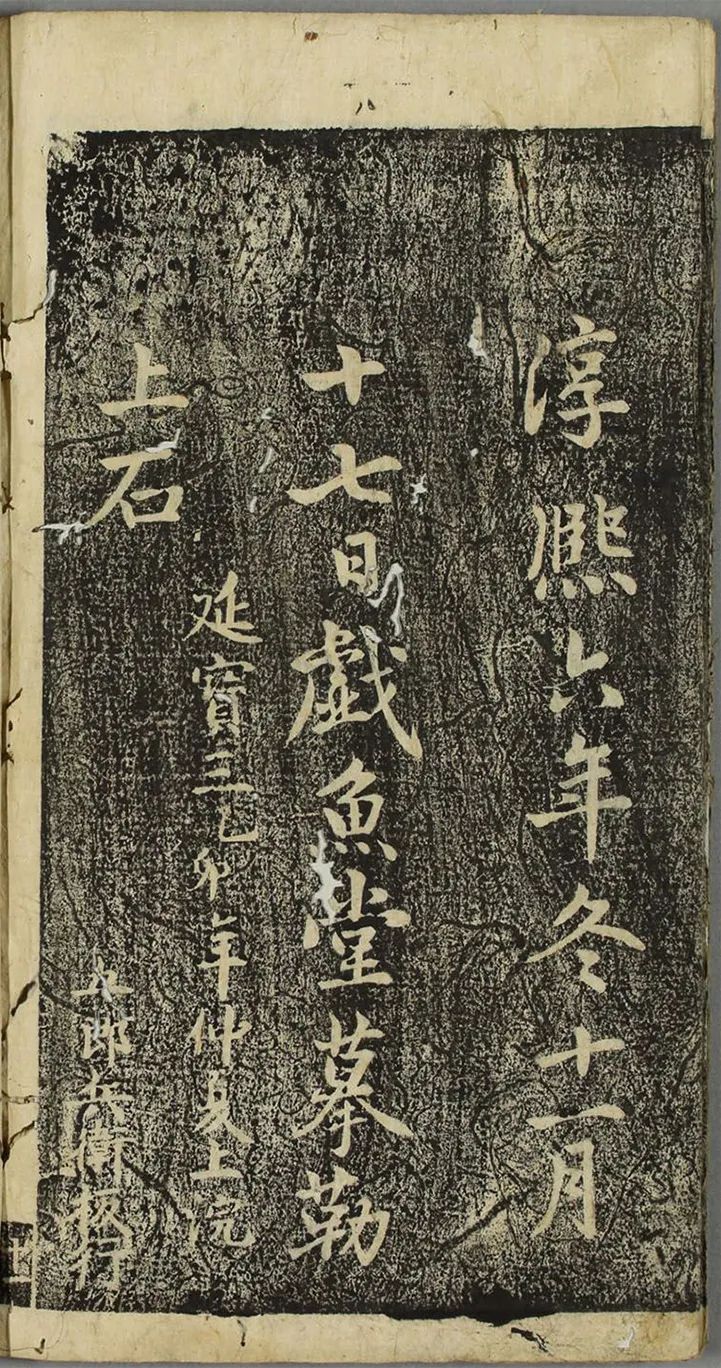 淳熙六年冬十一月
十七日戯魚堂摹勒
上石
延寶三乙卯年仲夏上浣
五郎兵衛板行